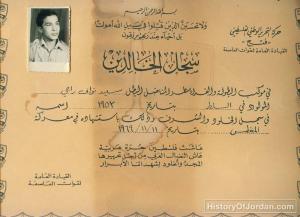 بسم الله الرحمن الرحيم
ولا تحسبن الذين قتلوا في سبيل الله أمواتا
بل أحياء عند ربهم يرزقون
حركة التحرير الوطني الفلسطيني
"فتح"
القيادة العامة لقوات العاصفة
سجل الخالدين
في موكب البطولة والفداء المناضل البطل سعيد
المولود في السلط بتاريخ ١٩٥٣ اسمه
في سجل الخلود والشرف وذلك باستشهاده في معركة
بتاريخ ١١/١١
عاشت فلسطين حرة عربية
عاش النضال العربي من أجل تحريرها
المجد والخلود لشهدائنا الأبرار
القيادة العامة
لقوات العاصفة
HistoryOfJordan.com